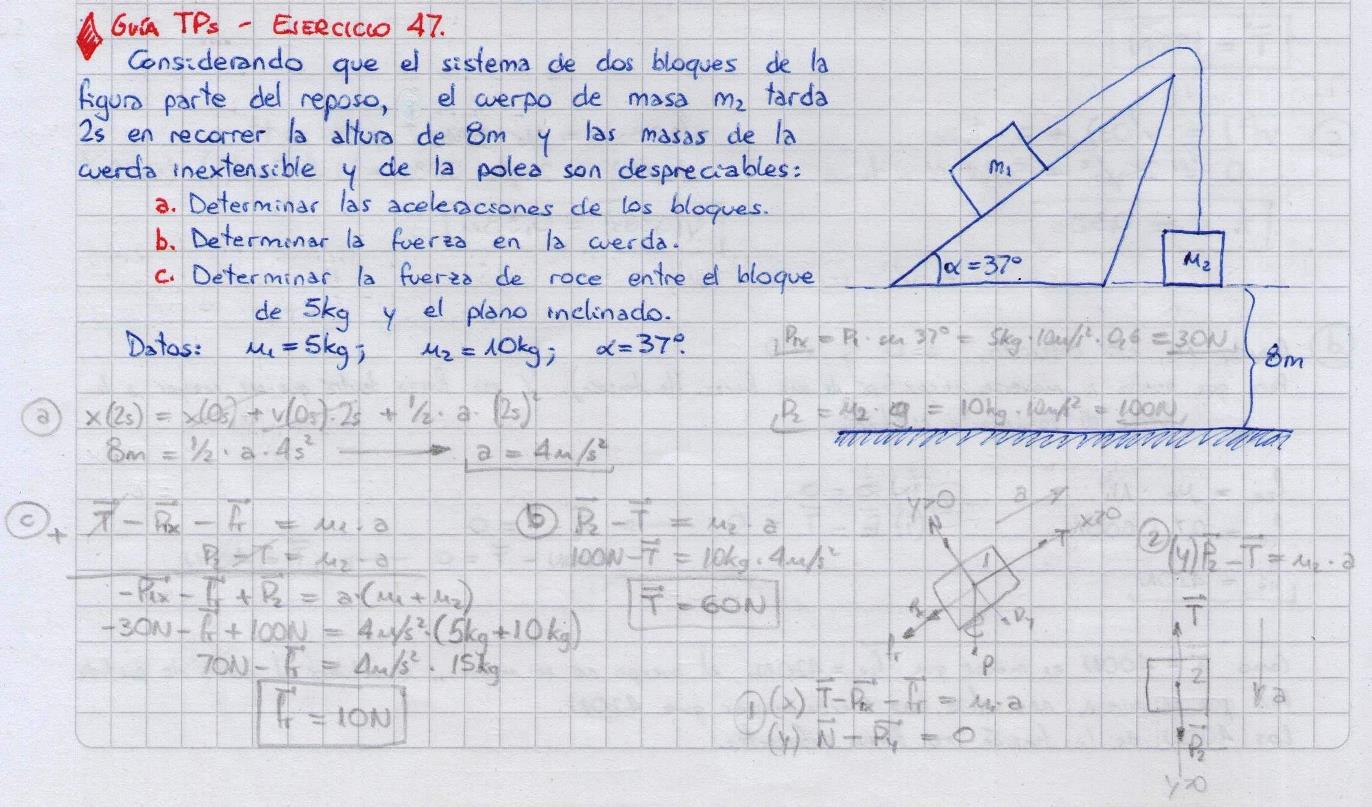 GUÍA TPs - EJERCICIO 47.
Considerando que el sistema de dos bloques de la
figura parte del reposo, el cuerpo de masa m₂ tarda
2s en recorrer la altura de 8m y las masas de la
cuerda inextensible y de la polea son despreciables:
a. Determinar las aceleraciones de los bloques.
b. Determinar la fuerza en la cuerda.
c. Determinar la fuerza de roce entre el bloque
de 5kg y el plano inclinado.
Datos: m₁ = 5kg; m₂ = 10kg; α = 37°.
m₁
m₂
α = 37°
8m
P₁ₓ = P₁ · sen 37° = 5kg · 10m/s² · 0,6 = 30N
P₂ = m₂ · g = 10kg · 10m/s² = 100N
a) x(2s) = x(0s) + v(0s) · 2s + 1/2 · a · (2s)²
8m = 1/2 · a · 4s² → a = 4m/s²
c) T - P₁ₓ - fr = m₁ · a
+ P₂ - T = m₂ · a
-P₁ₓ - fr + P₂ = a · (m₁ + m₂)
-30N - fr + 100N = 4m/s² · (5kg + 10kg)
70N - fr = 4m/s² · 15kg
fr = 10N
b) P₂ - T = m₂ · a
100N - T = 10kg · 4m/s²
T = 60N
y>0
N
a
x>0
T
1
fr
P
Py
1) (x) T - P₁ₓ - fr = m₁ · a
(y) N - Py = 0
2) (y) P₂ - T = m₂ · a
T
2
a
P₂
y>0